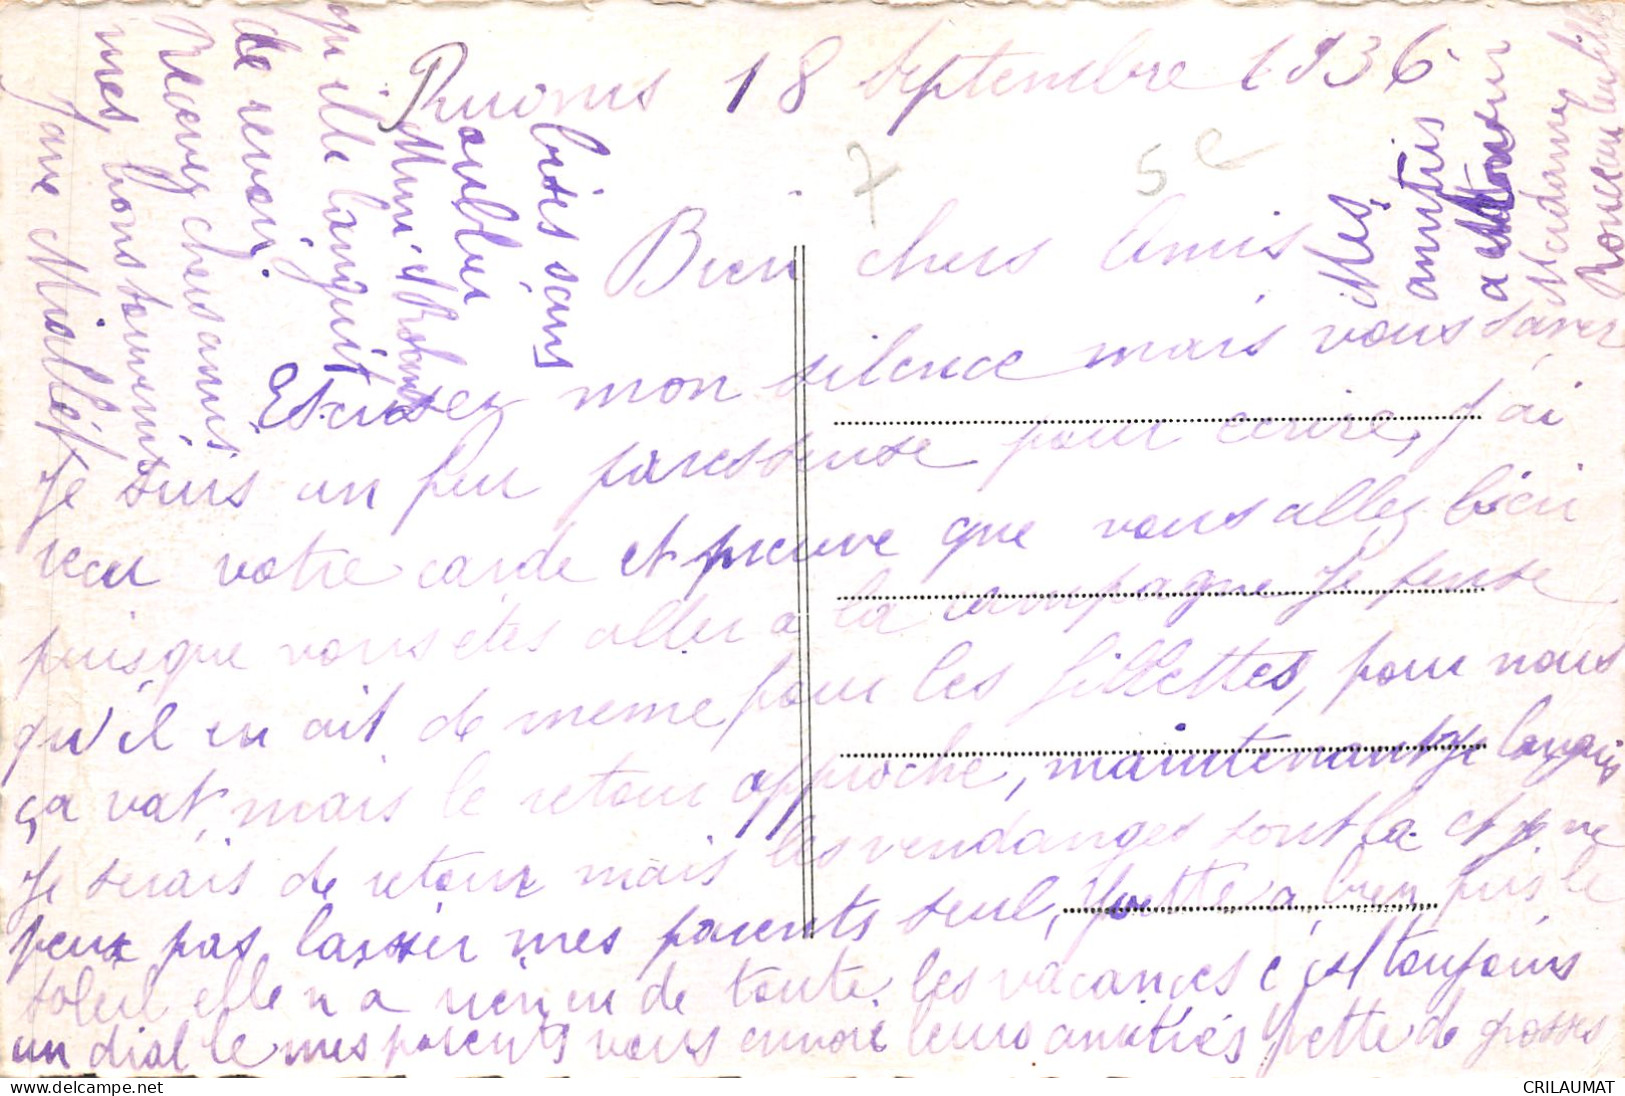 Ruoms 18 Septembre 1936
7 5e
Bien chers Amis
Escusez mon silence mais vous savez
Je suis un peu paresseuse pour ecrire, j'ai
recu votre carde et preuve que vous allez bien
puisque vous etes aller a la campagne Je pense
qu'il en ait de meme pour les fillettes, pour nous
ça vat, mais le retour approche, maintenant je languis
Je serais de retour mais les vendanges sont la et je ne
peux pas laisser mes parents seul, Yvette a, bien pris le
soleil elle n a rien eu de toute les vacances c'est toujours
un diable mes parents vous envoie leurs amitiés Yvette de grosses
bises sans
oublier
Mimi et Roland
qu'elle languit
de revoir.
Recevez chers amis
mes bons souvenirs
Jane
Mes
amitiés
a
Mesdames
Ronceau